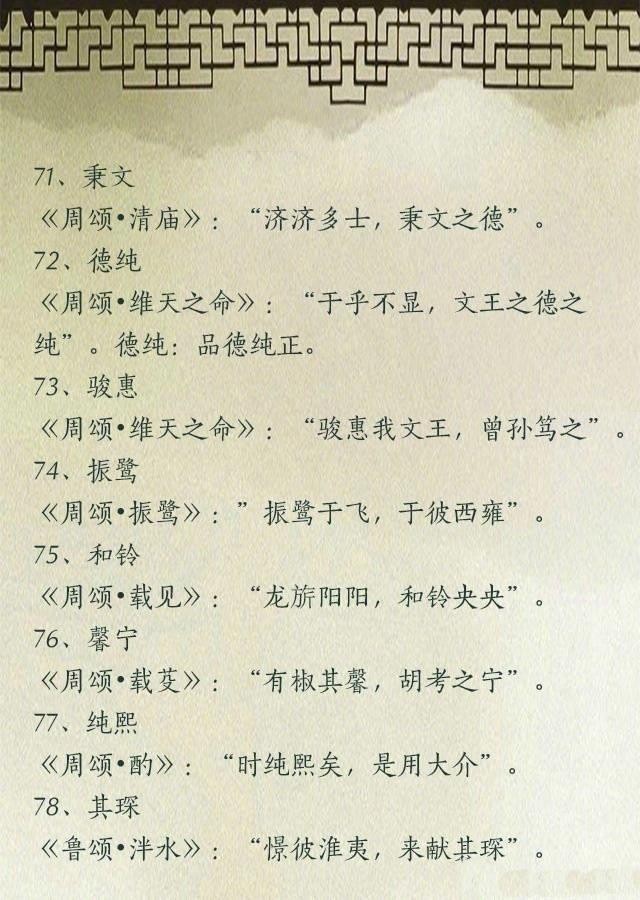 71、秉文
《周颂•清庙》：“济济多士，秉文之德”。
72、德纯
《周颂•维天之命》：“于乎不显，文王之德之
纯”。德纯：品德纯正。
73、骏惠
《周颂•维天之命》：“骏惠我文王，曾孙笃之”。
74、振鹭
《周颂•振鹭》：”振鹭于飞，于彼西雍”。
75、和铃
《周颂•载见》：“龙旂阳阳，和铃央央”。
76、馨宁
《周颂•载芟》：“有椒其馨，胡考之宁”。
77、纯熙
《周颂•酌》：“时纯熙矣，是用大介”。
78、其琛
《鲁颂•泮水》：“憬彼淮夷，来献其琛”。